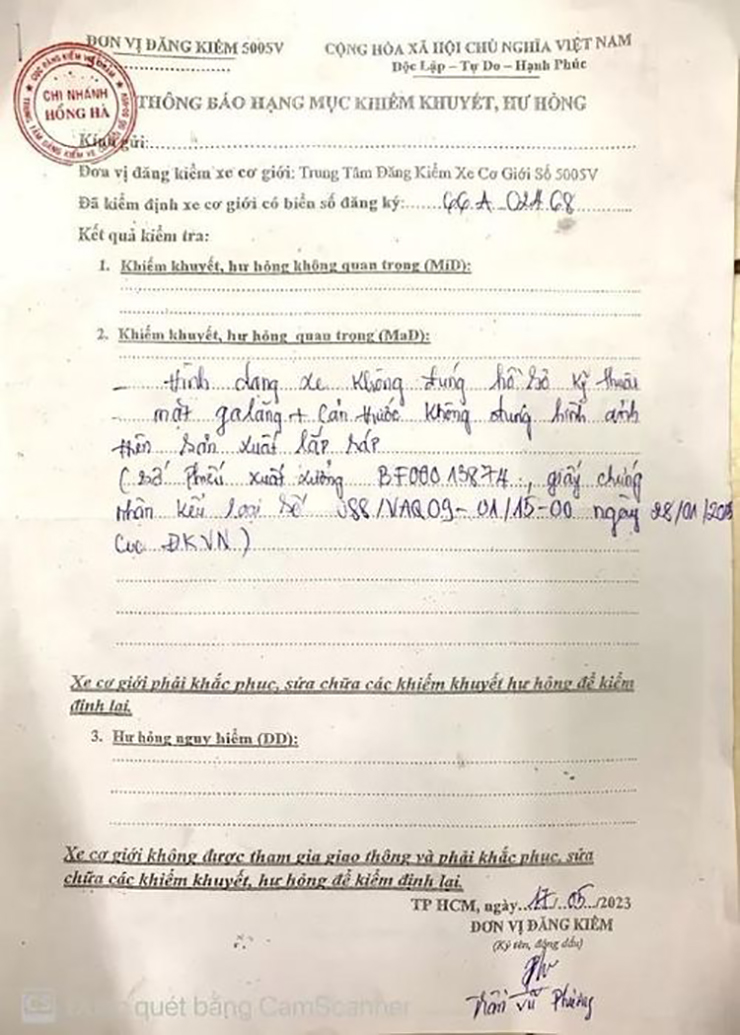 ĐƠN VỊ ĐĂNG KIỂM 5005V
CỘNG HÒA XÃ HỘI CHỦ NGHĨA VIỆT NAM
Độc Lập – Tự Do – Hạnh Phúc
CHI NHÁNH
HỒNG HÀ
THÔNG BÁO HẠNG MỤC KHIẾM KHUYẾT, HƯ HỎNG
Kính gửi:
Đơn vị đăng kiểm xe cơ giới: Trung Tâm Đăng Kiểm Xe Cơ Giới Số 5005V
Đã kiểm định xe cơ giới có biển số đăng ký: 66A
Kết quả kiểm tra:
1. Khiếm khuyết, hư hỏng không quan trọng (MiD):
2. Khiếm khuyết, hư hỏng quan trọng (MaD):
– Hình dạng xe không đúng hồ sơ kỹ thuật
mặt galăng + Cản trước không đúng hình ảnh
trên bản xuất lắp ráp
(số Phiếu xuất xưởng giấy chứng
nhận kiểu loại số 088/VAQ09-01/15-00 ngày 28/01/
Cục ĐKVN)
Xe cơ giới phải khắc phục, sửa chữa các khiếm khuyết hư hỏng để kiểm
định lại.
3. Hư hỏng nguy hiểm (DD):
Xe cơ giới không được tham gia giao thông và phải khắc phục, sửa
chữa các khiếm khuyết, hư hỏng để kiểm định lại.
TP HCM, ngày 17/05/2023
ĐƠN VỊ ĐĂNG KIỂM
(Ký tên, đóng dấu)
Trần Vũ Phương
CS quét bằng CamScanner